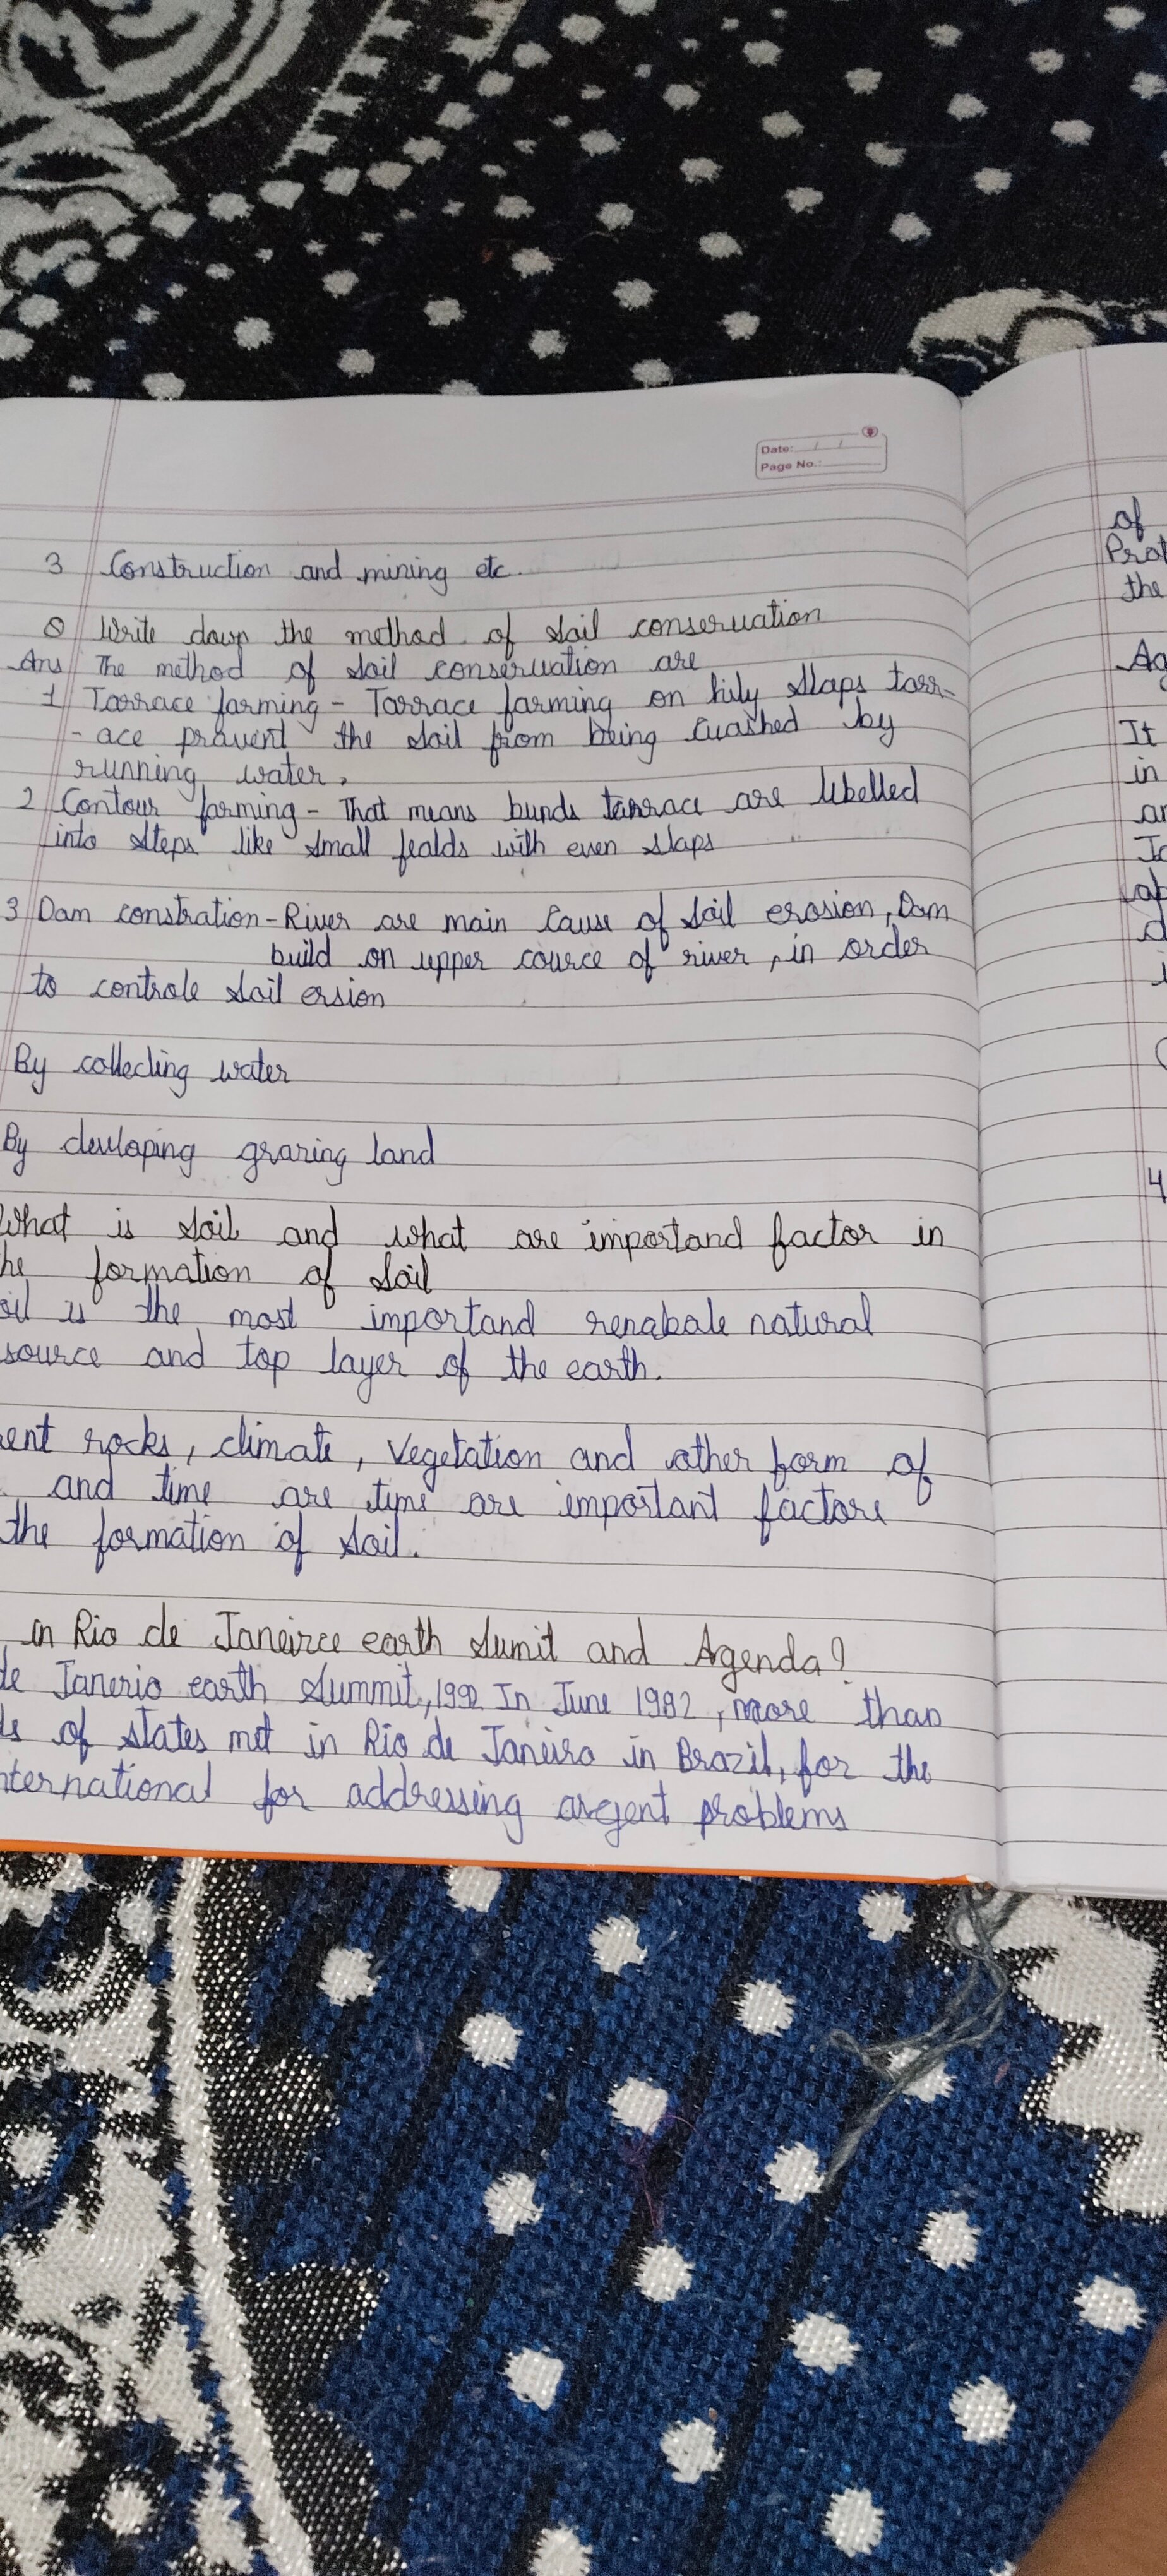 Date: / /
Page No.:
3 Construction and mining etc.
Q Write down the method of soil conservation
Ans The method of soil conservation are
1 Tarrace farming - Tarrace farming on hily slaps tarr-
- ace pravent the soil from being washed by
running water.
2 Contour farming - That means bunds tarrace are libelled
into steps like small fealds with even slaps
3 Dam constration - River are main cause of soil erosion, Dam
build on upper cource of river, in order
to controle soil ersion
By collecting water
By devloping grazing land
What is soil and what are importand factor in
he formation of soil
oil is the most importand renabale natural
source and top layer of the earth.
ent rocks, climate, vegetation and other form of
and time are time are important factors
the formation of soil.
in Rio de Janeirce earth sumit and Agenda?
de Janerio earth summit, 1992 In June 1982, more than
ds of states met in Rio de Janeiro in Brazil, for the
nternational for addressing argent problems
of
Prot
the
Ag
It
in
ar
4